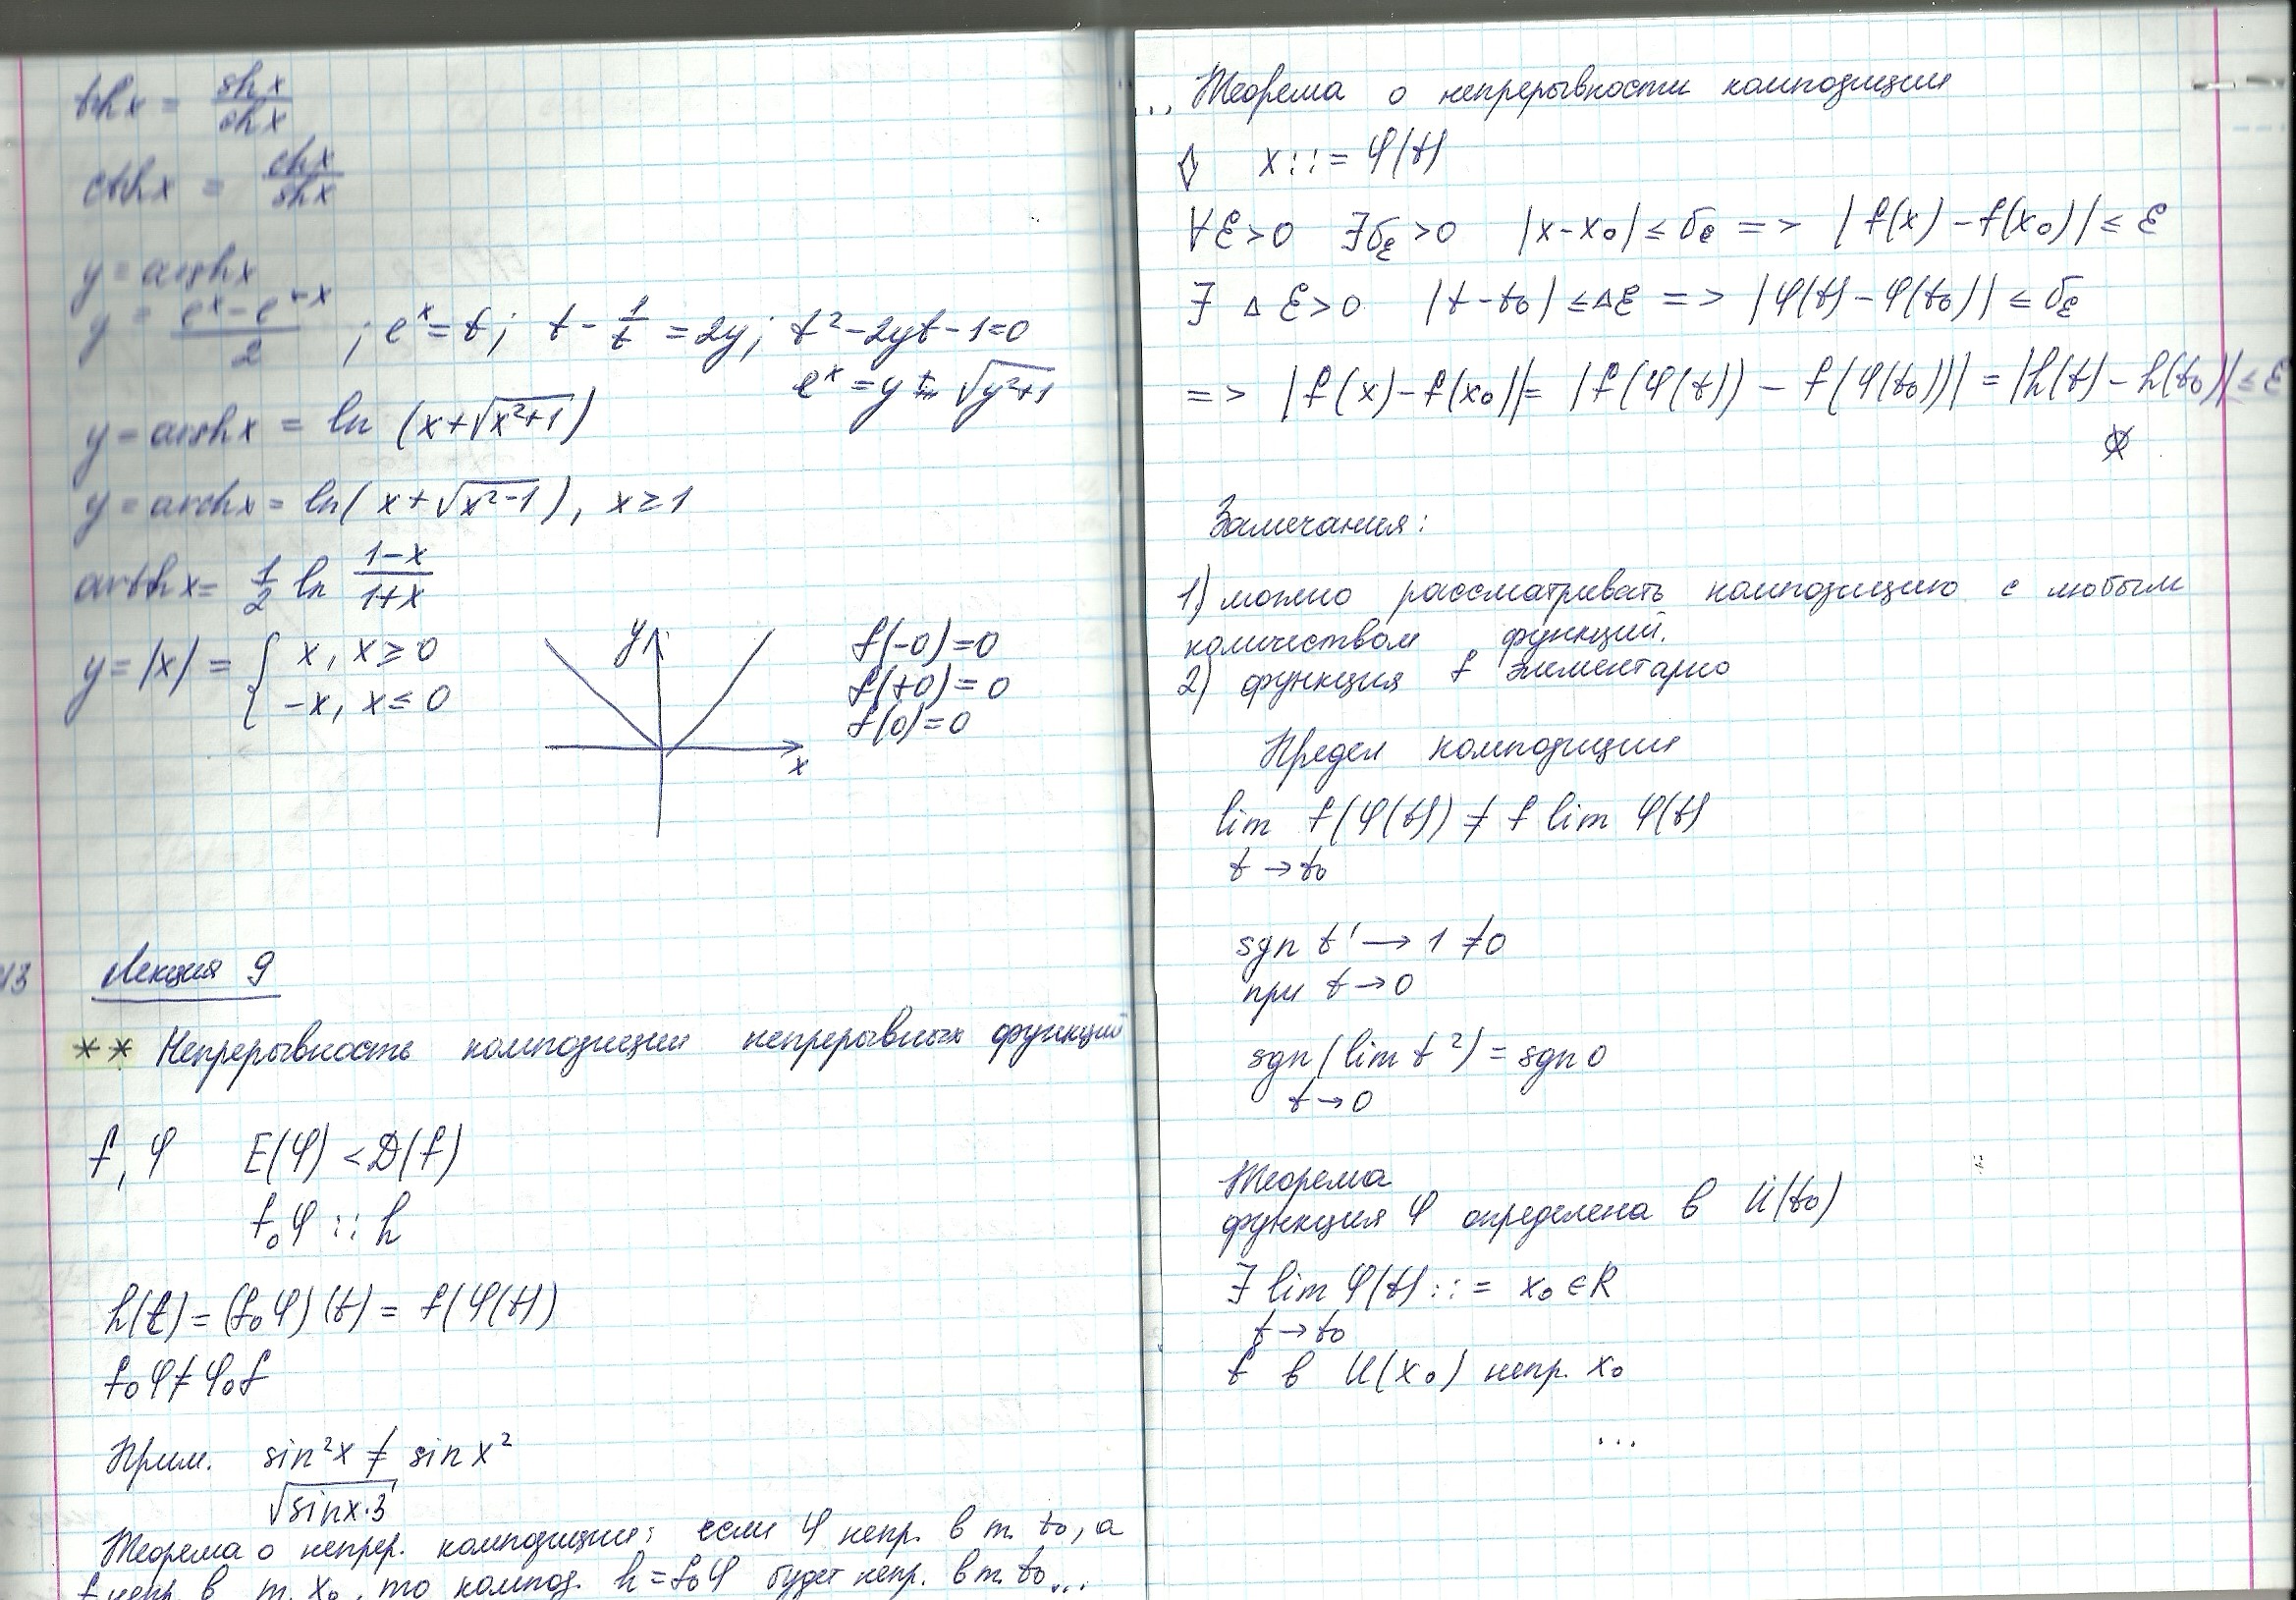 thx = shx/chx
cthx = chx/shx
y = arshx
y = (eˣ - e⁻ˣ)/2 ; eˣ = t; t - 1/t = 2y; t² - 2yt - 1 = 0
eˣ = y ± √(y²+1)
y = arshx = ln (x+√(x²+1))
y = archx = ln(x+√(x²-1)), x ≥ 1
arthx = 1/2 ln (1-x)/(1+x)
y = |x| = { x, x ≥ 0
-x, x ≤ 0
y
x
f(-0) = 0
f(+0) = 0
f(0) = 0
13 Лекция 9
** Непрерывность композиции непрерывных функций
f, φ E(φ) < D(f)
f∘φ :: h
h(t) = (f∘φ)(t) = f(φ(t))
f∘φ ≠ φ∘f
Прим. sin²x ≠ sin x²
√(sinx·3)
Теорема о непрер. композиции: если φ непр. в т. t₀, а
f непр. в т. x₀, то композ. h = f∘φ будет непр. в т. t₀...
... Теорема о непрерывности композиции
x ::= φ(t)
∀ε > 0 ∃δε > 0 |x - x₀| ≤ δε => |f(x) - f(x₀)| ≤ ε
∃ Δε > 0 |t - t₀| ≤ Δε => |φ(t) - φ(t₀)| ≤ δε
=> |f(x) - f(x₀)| = |f(φ(t)) - f(φ(t₀))| = |h(t) - h(t₀)| ≤ ε
Замечания:
1) можно рассматривать композицию с любым
количеством функций.
2) функция f элементарно
Предел композиции
lim f(φ(t)) ≠ f lim φ(t)
t → t₀
sgn t' → 1 ≠ 0
при t → 0
sgn(lim t²) = sgn 0
t → 0
Теорема
функция φ определена в U̇(t₀)
∃ lim φ(t) ::= x₀ ∈ R
t → t₀
f в U(x₀) непр. x₀
...